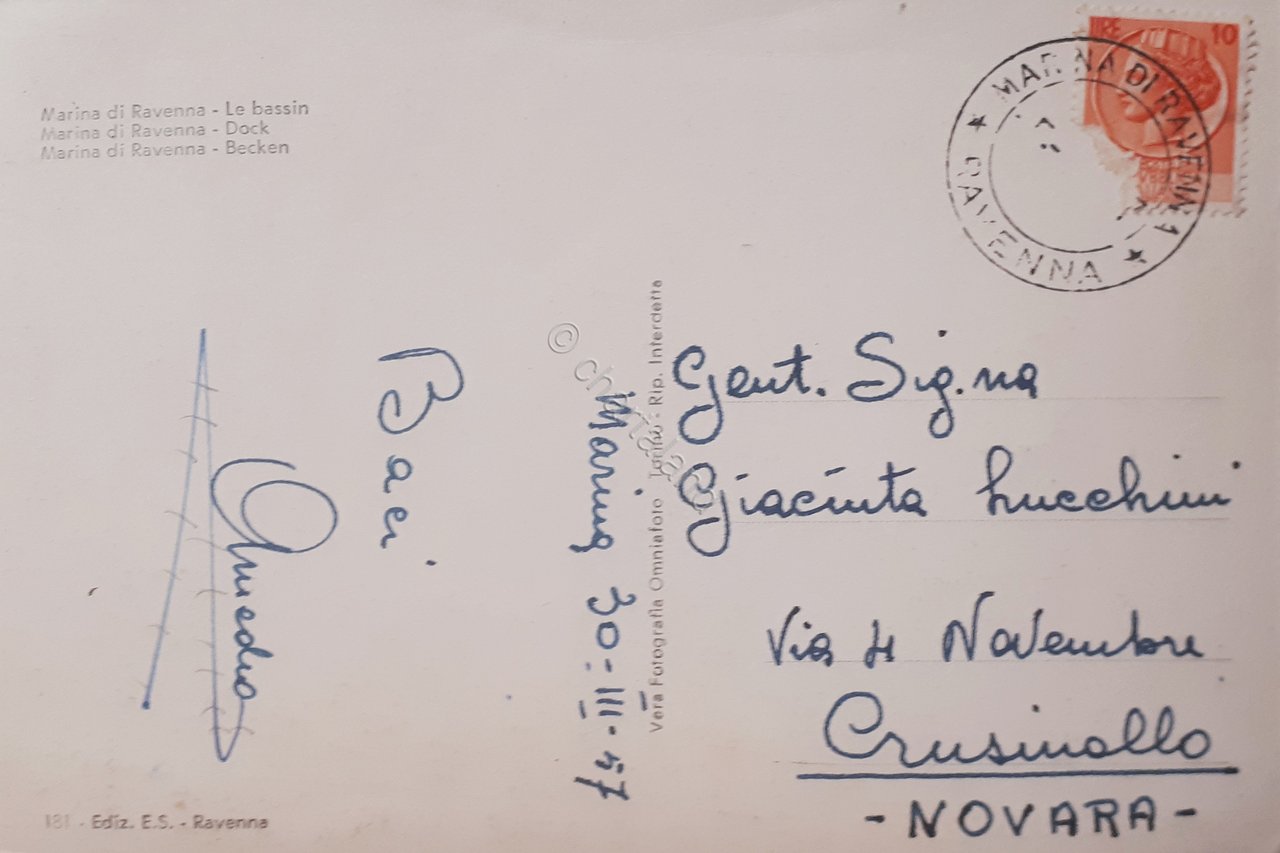 Marina di Ravenna - Le bassin
Marina di Ravenna - Dock
Marina di Ravenna - Becken
LIRE 10
MARINA DI RAVENNA
RAVENNA
Baci
Amedeo
Marina 30-III-57
Vera Fotografia Omniafoto Torino - Rip. Interdetta
Gent. Sig.na
Giacinta Lucchini
Via 4 Novembre
Crusinallo
- NOVARA -
181 - Ediz. E.S. - Ravenna